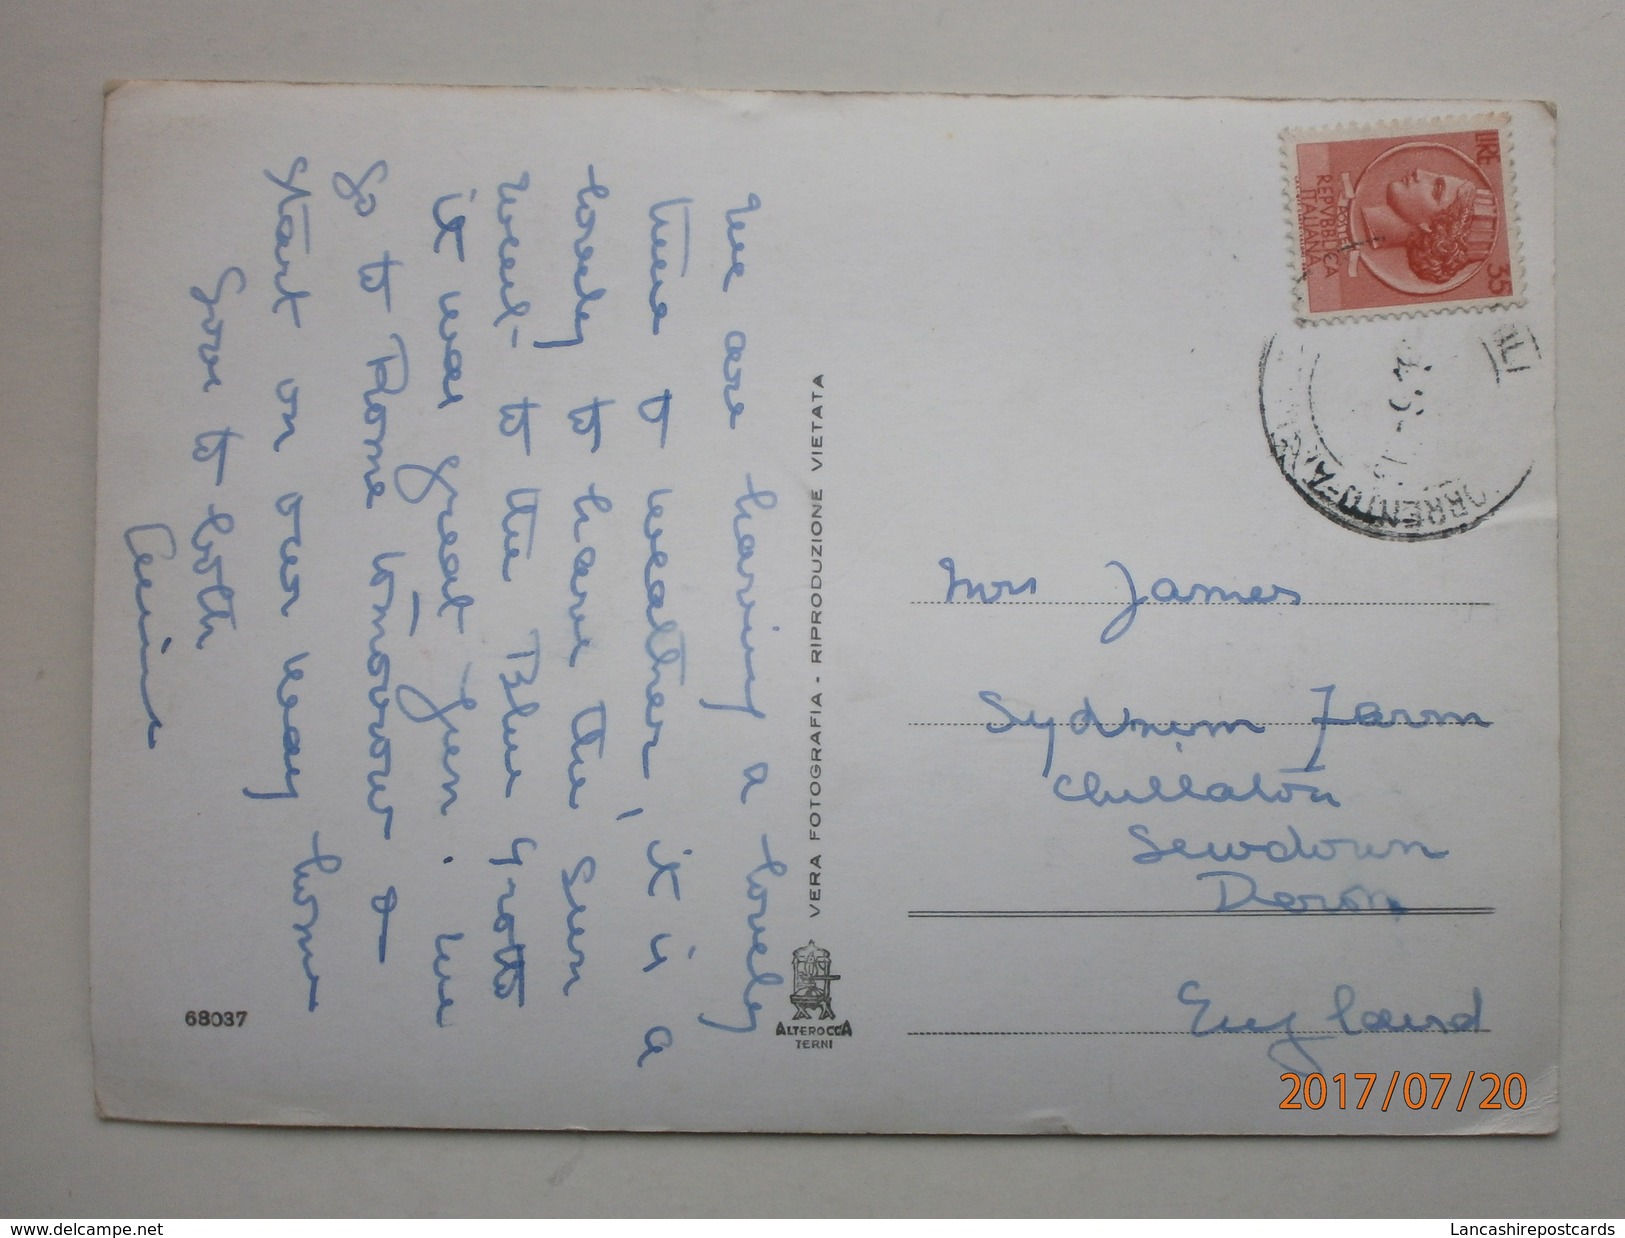 We are having a lovely
time & weather, it is a
lovely to have the sun
went to the Blue Grotto
it was great fun. We
go to Rome tomorrow &
start on our way home
love to both
VERA FOTOGRAFIA - RIPRODUZIONE VIETATA
ALTEROCCA
TERNI
68037
LIRE 35
REPVBBLICA
ITALIANA
POSTE
Mrs James
Sydenham Farm
Chillaton
Lewdown
Devon
England
2017/07/20
www.delcampe.net
Lancashirepostcards